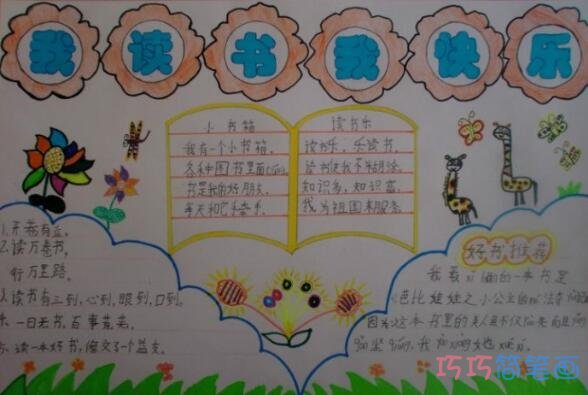 我读书我快乐
小书箱
我有一个小书箱,
各种图书里面cáng。
书是我的好朋友,
每天和它手牵手。
读书乐
读书乐,乐读书,
读书使我不糊涂。
知识多,知识富,
我为祖国来服务。
1.开卷有益。
2.读万卷书,
行万里路。
3.读书有三到,心到,眼到,口到。
4.一日无书,百事荒芜。
5.读一本好书,像交了一个益友。
好书推荐
我最 的一本书是
芭比娃娃之小公主的
因为这本书里的美人鱼不仅 而且
我
巧巧简笔画